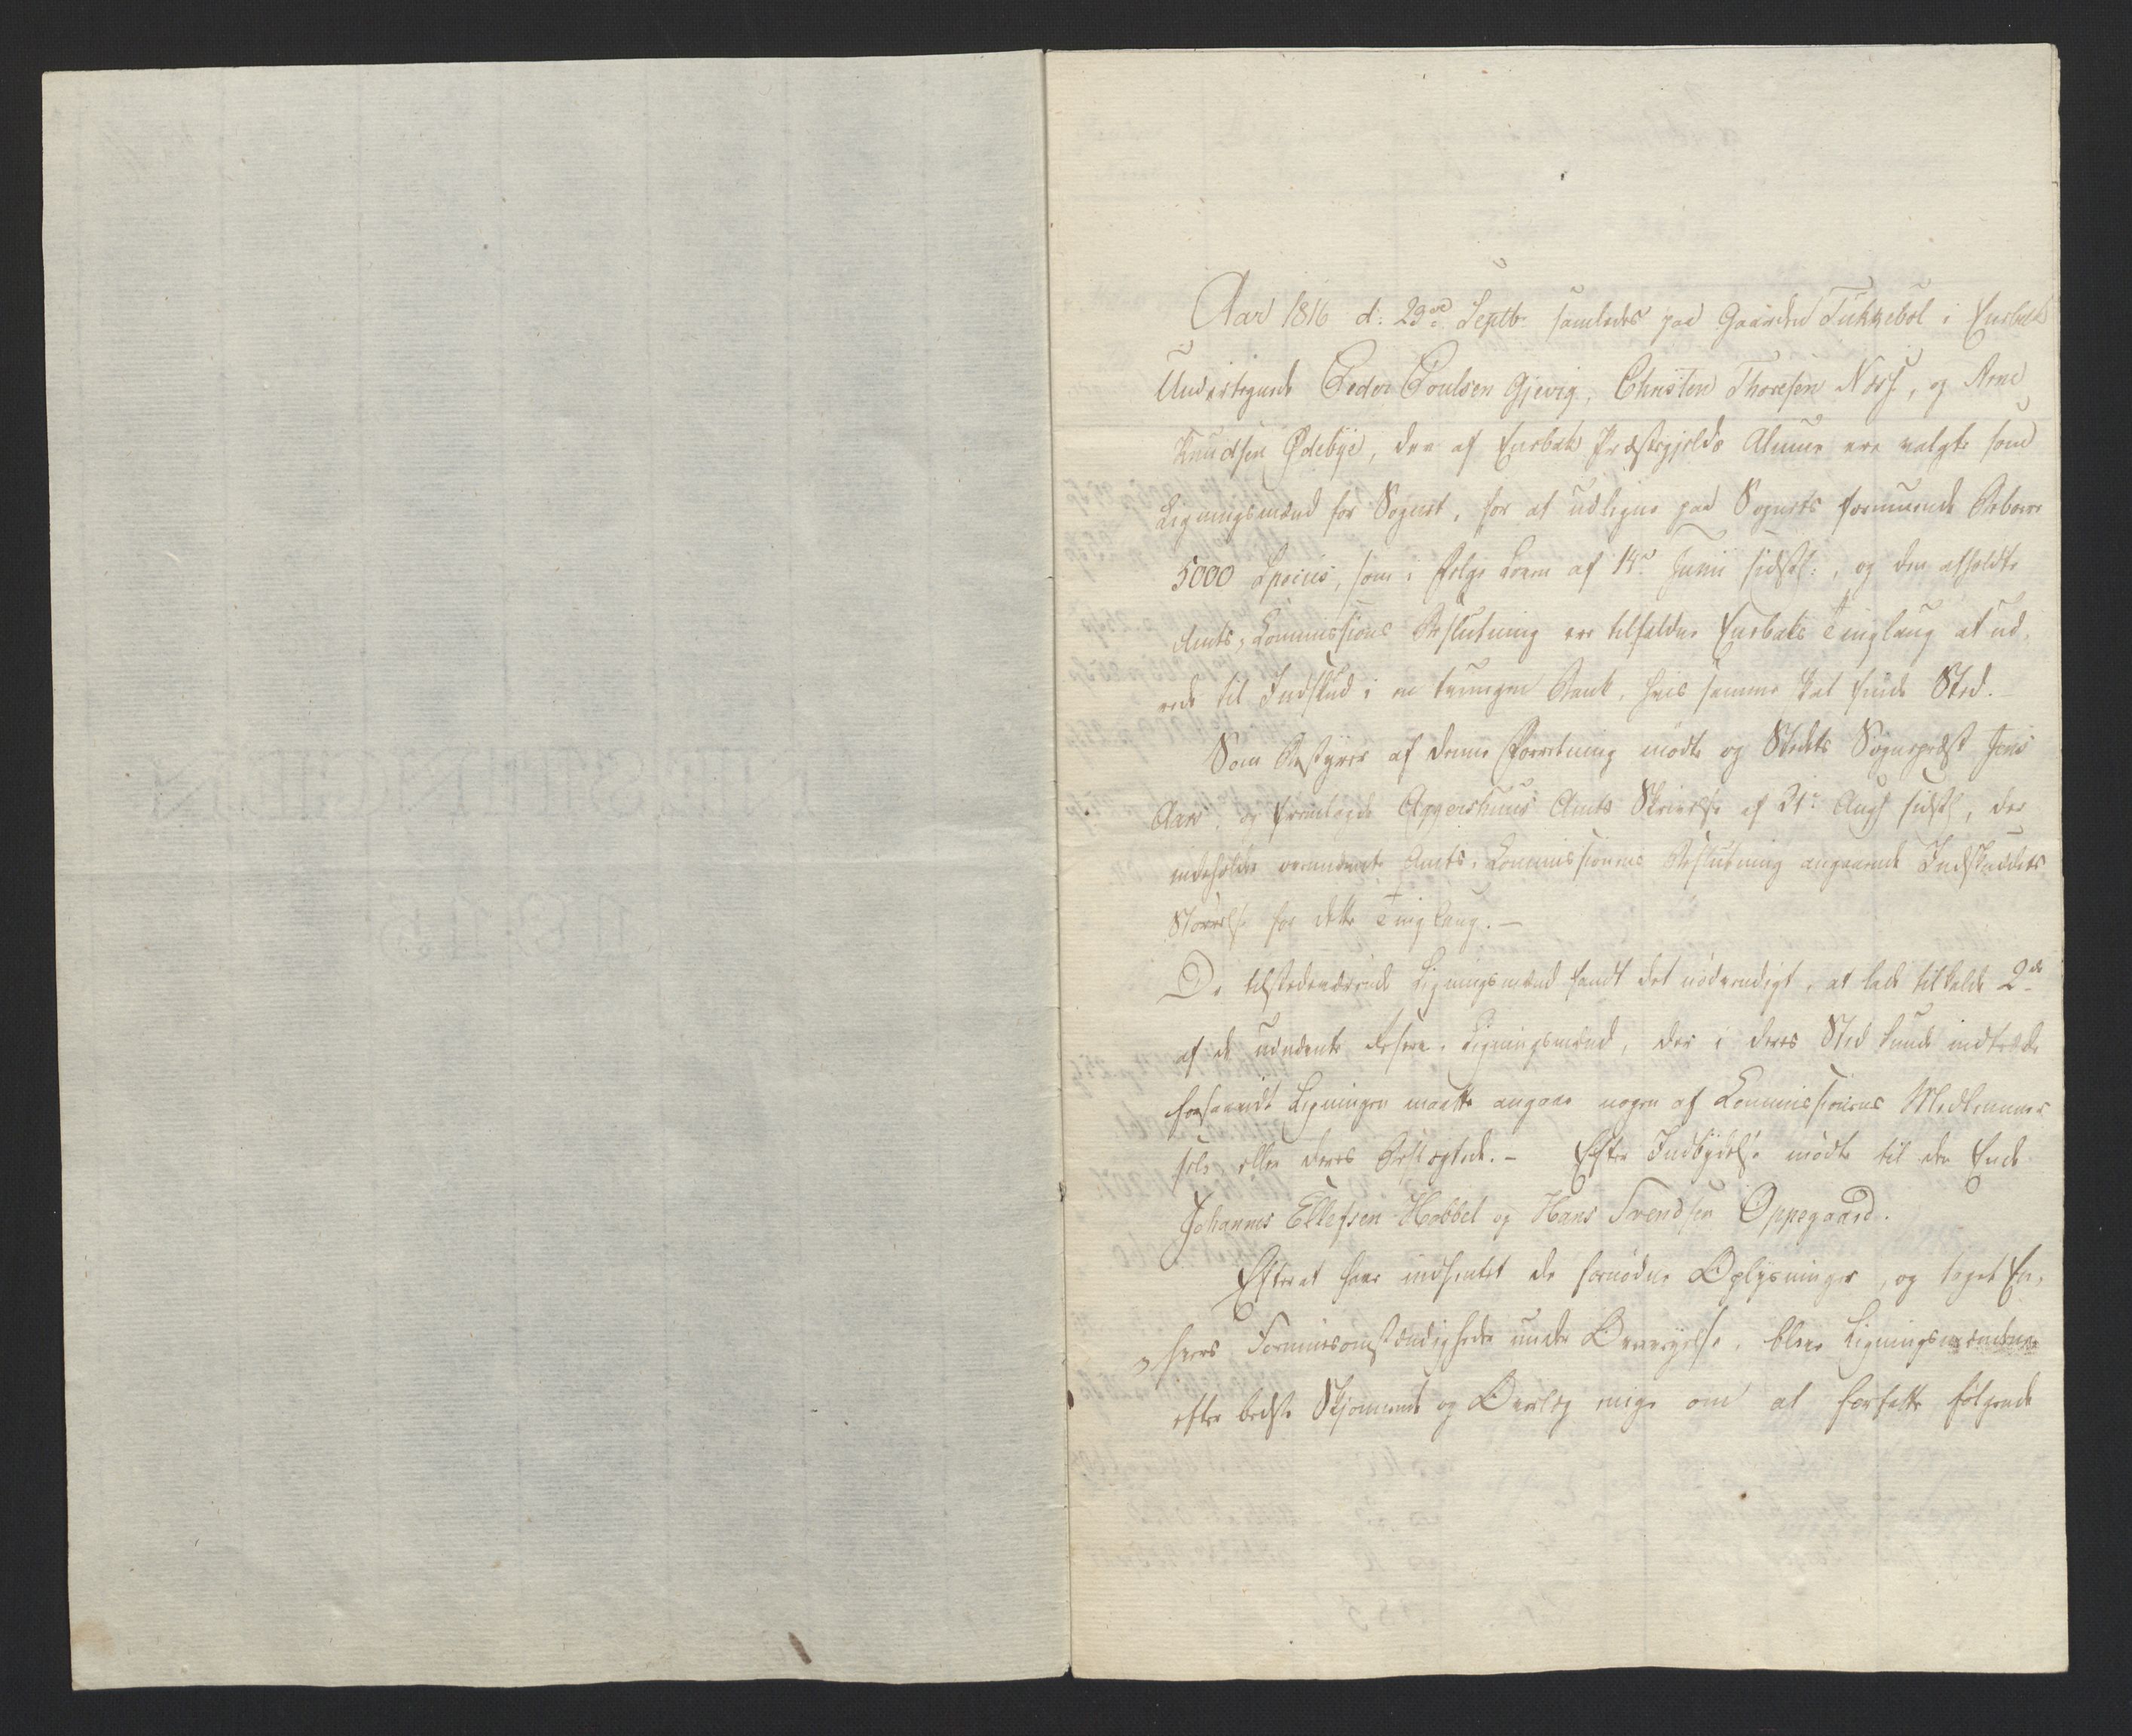 Aar 1816 d: 23de Septbr samledes paa Gaarden Tukkebøl i Enebak
Undertegnede Peder Poulsen Gjevig, Christen Thoresen Næss, og Arne
Knudsen Ødebye, der af Enebak Præstegjelds Almue ere valgte som
Ligningsmænd for Sognet, for at udligne paa Sognets formuende Beboere
5000 Species, som i Følge Loven af 14de Junii sidstl:, og den afholdte
Amts-Commissions Beslutning ere tilfaldne Enebaks Tinglaug at ud-
rede til Indskud i en tvungen Bank, hvis samme skal finde Sted.
Som Bestyrer af denne Forretning mødte og Stedets Sognepræst Jens
Aars, og fremlagde Aggershuus Amts Skrivelse af 31te Aug sidstl, der
indeholder ovennævnte Amts-Commissionens Beslutning angaaende Indskuddets
Størrelse for dette Tinglaug. —
De tilstedeværende Ligningsmænd fandt det nødvendigt, at lade tilkalde 2de
af de udnævnte Reserve-Ligningsmænd, der i deres Sted kunde indtræde
forsaavidt Ligningen maatte angaae nogen af Commissionens Medlemmer
selv eller deres Beslægtede. — Efter Indbydelse mødte til den Ende
Johannes Ellefsen Hobbel og Hans Svendsen Oppegaard.
Efterat have indhentet de fornødne Oplysninger, og taget En-
hvers Formuesomstændigheder under Overveyelse, bleve Ligningsmændene
efter bedste Skjønnende og Overlæg enige om at forfatte følgende
NIESTHINGHEN
1815